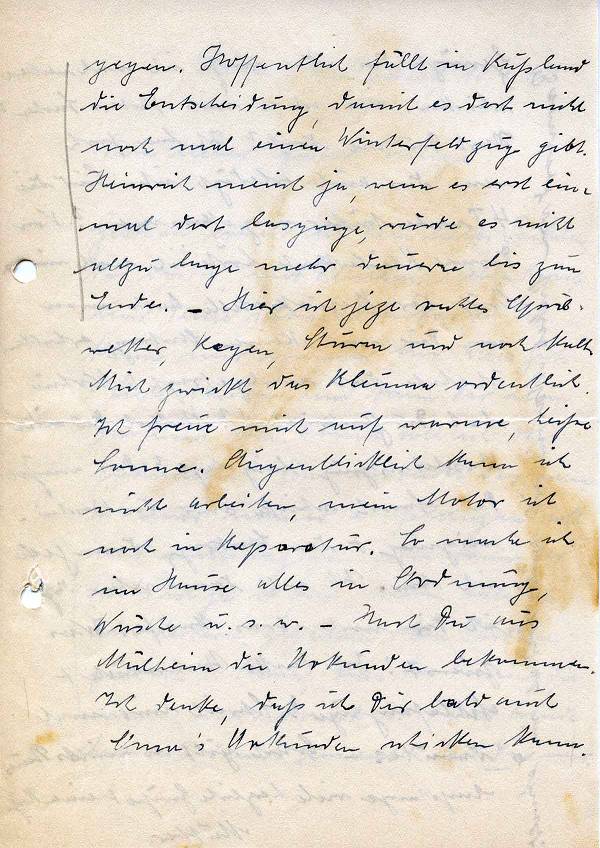 gegen. Hoffentlich fällt in Rußland
die Entscheidung, damit es dort nicht
noch mal einen Winterfeldzug gibt.
Heinrich meint ja, wenn es erst ein-
mal dort losginge, würde es nicht
allzu lange mehr dauern bis zum
Ende. – Hier ist jetzt rechtes April-
wetter, Regen, Sturm und noch kalt.
Mich zwickt das Rheuma ordentlich.
Ich freue mich auf warme, heiße
Sonne. Augenblicklich kann ich
nicht arbeiten, mein Motor ist
noch in Reparatur. So mache ich
im Hause alles in Ordnung,
Wäsche u. s. w. – Hast Du aus
Mülheim die Urkunden bekommen.
Ich denke, daß ich Dir bald auch
Urkunden schicken kann.